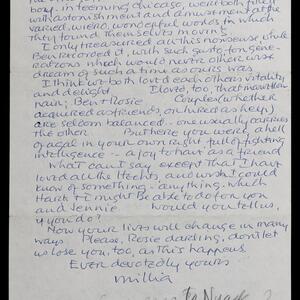 boy, in teeming Chicago, were both filled
with astonishment and amusement at the
varied, weird, wonderful worlds in which
they found themselves moving
I only treasured all this nonsense while
Ben recorded it, with such gusto, for gene-
rations which would never otherwise
dream of such a time as ours was.
I think we both loved each others vitality
and delight I loved, too, that
vain; Ben + Rosie Couples (whether
acquired as friends, or hired as help)
are seldom balanced - one usually carries
the other. But here you were, a hell
of a gal in your own right full of fighting
intelligence - a joy to have as a friend
What can I say except that I have
loved all the Hechts, and wish I could
know of something - anything, which
I might be able to do for you
and Jennie Would you tell us,
if you do?
Now your lives will change in many
ways Please, Rosie darling, don't let
us lose you, too, as this happens
Ever devotedly yours
to Nyack